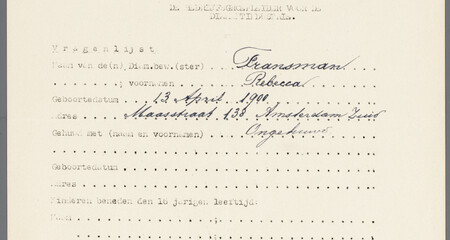 DE VOOR DE
V r a g e n l i j s t
Naam van de(n) Diam.bew.(ster) Fransman
voornamen Rebecca
Geboortedatum 12 April 1900
Adres Maasstraat 133 Amsterdam Zuid
Gehuwd met (naam en voornamen) Ongehuwd
Geboortedatum
Adres
Kinderen beneden den 16 jarigen leeftijd:
Naam